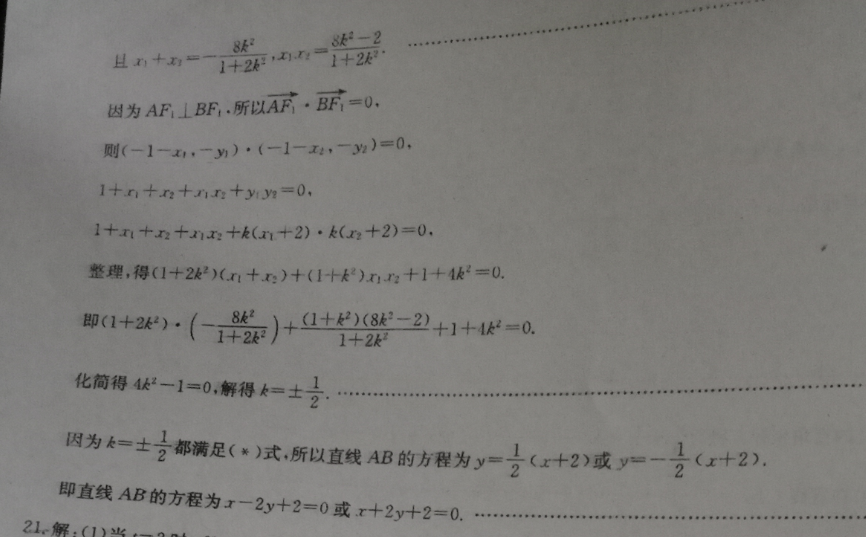 且 x₁+x₂=-\frac{8k²}{1+2k²},x₁x₂=\frac{8k²-2}{1+2k²}.
因为 AF₁⊥BF₁,所以\overrightarrow{AF₁}·\overrightarrow{BF₁}=0,
则(-1-x₁,-y₁)·(-1-x₂,-y₂)=0,
1+x₁+x₂+x₁x₂+y₁y₂=0,
1+x₁+x₂+x₁x₂+k(x₁+2)·k(x₂+2)=0,
整理,得(1+2k²)(x₁+x₂)+(1+k²)x₁x₂+1+4k²=0.
即(1+2k²)·(-\frac{8k²}{1+2k²})+\frac{(1+k²)(8k²-2)}{1+2k²}+1+4k²=0.
化简得 4k²-1=0,解得 k=±\frac{1}{2}.
因为 k=±\frac{1}{2}都满足(*)式,所以直线 AB 的方程为 y=\frac{1}{2}(x+2)或 y=-\frac{1}{2}(x+2),
即直线 AB 的方程为 x-2y+2=0 或 x+2y+2=0.
21. 解:(1)当